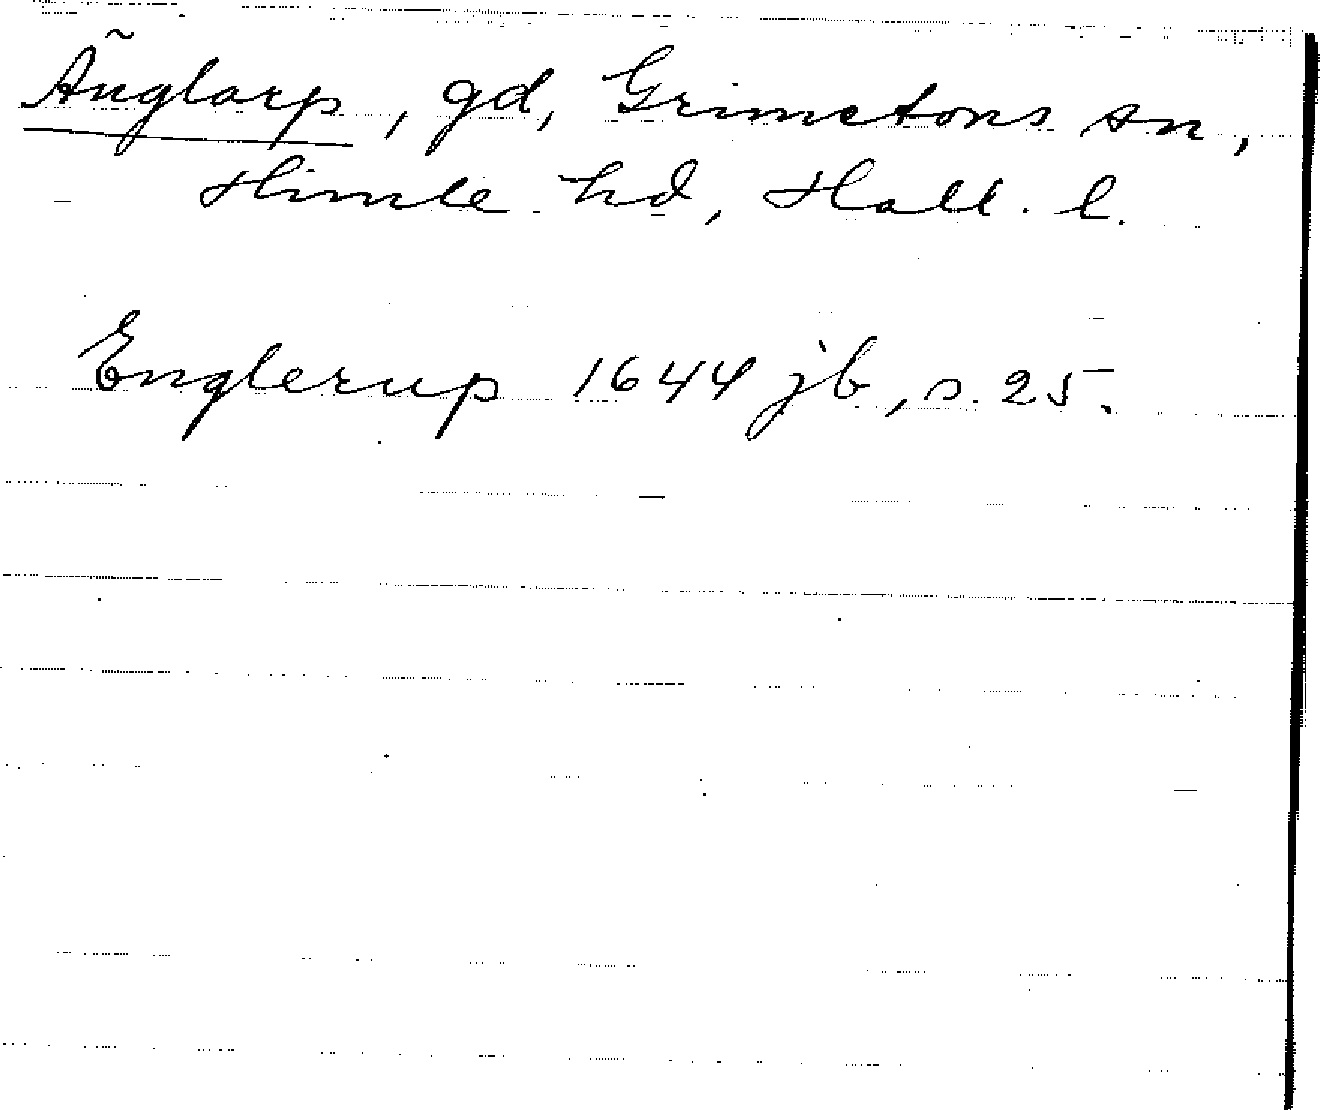 Änglarp, gd, Grimetons sn,
Himle hd, Hall. l.
Englerup 1644 jb, s. 25.